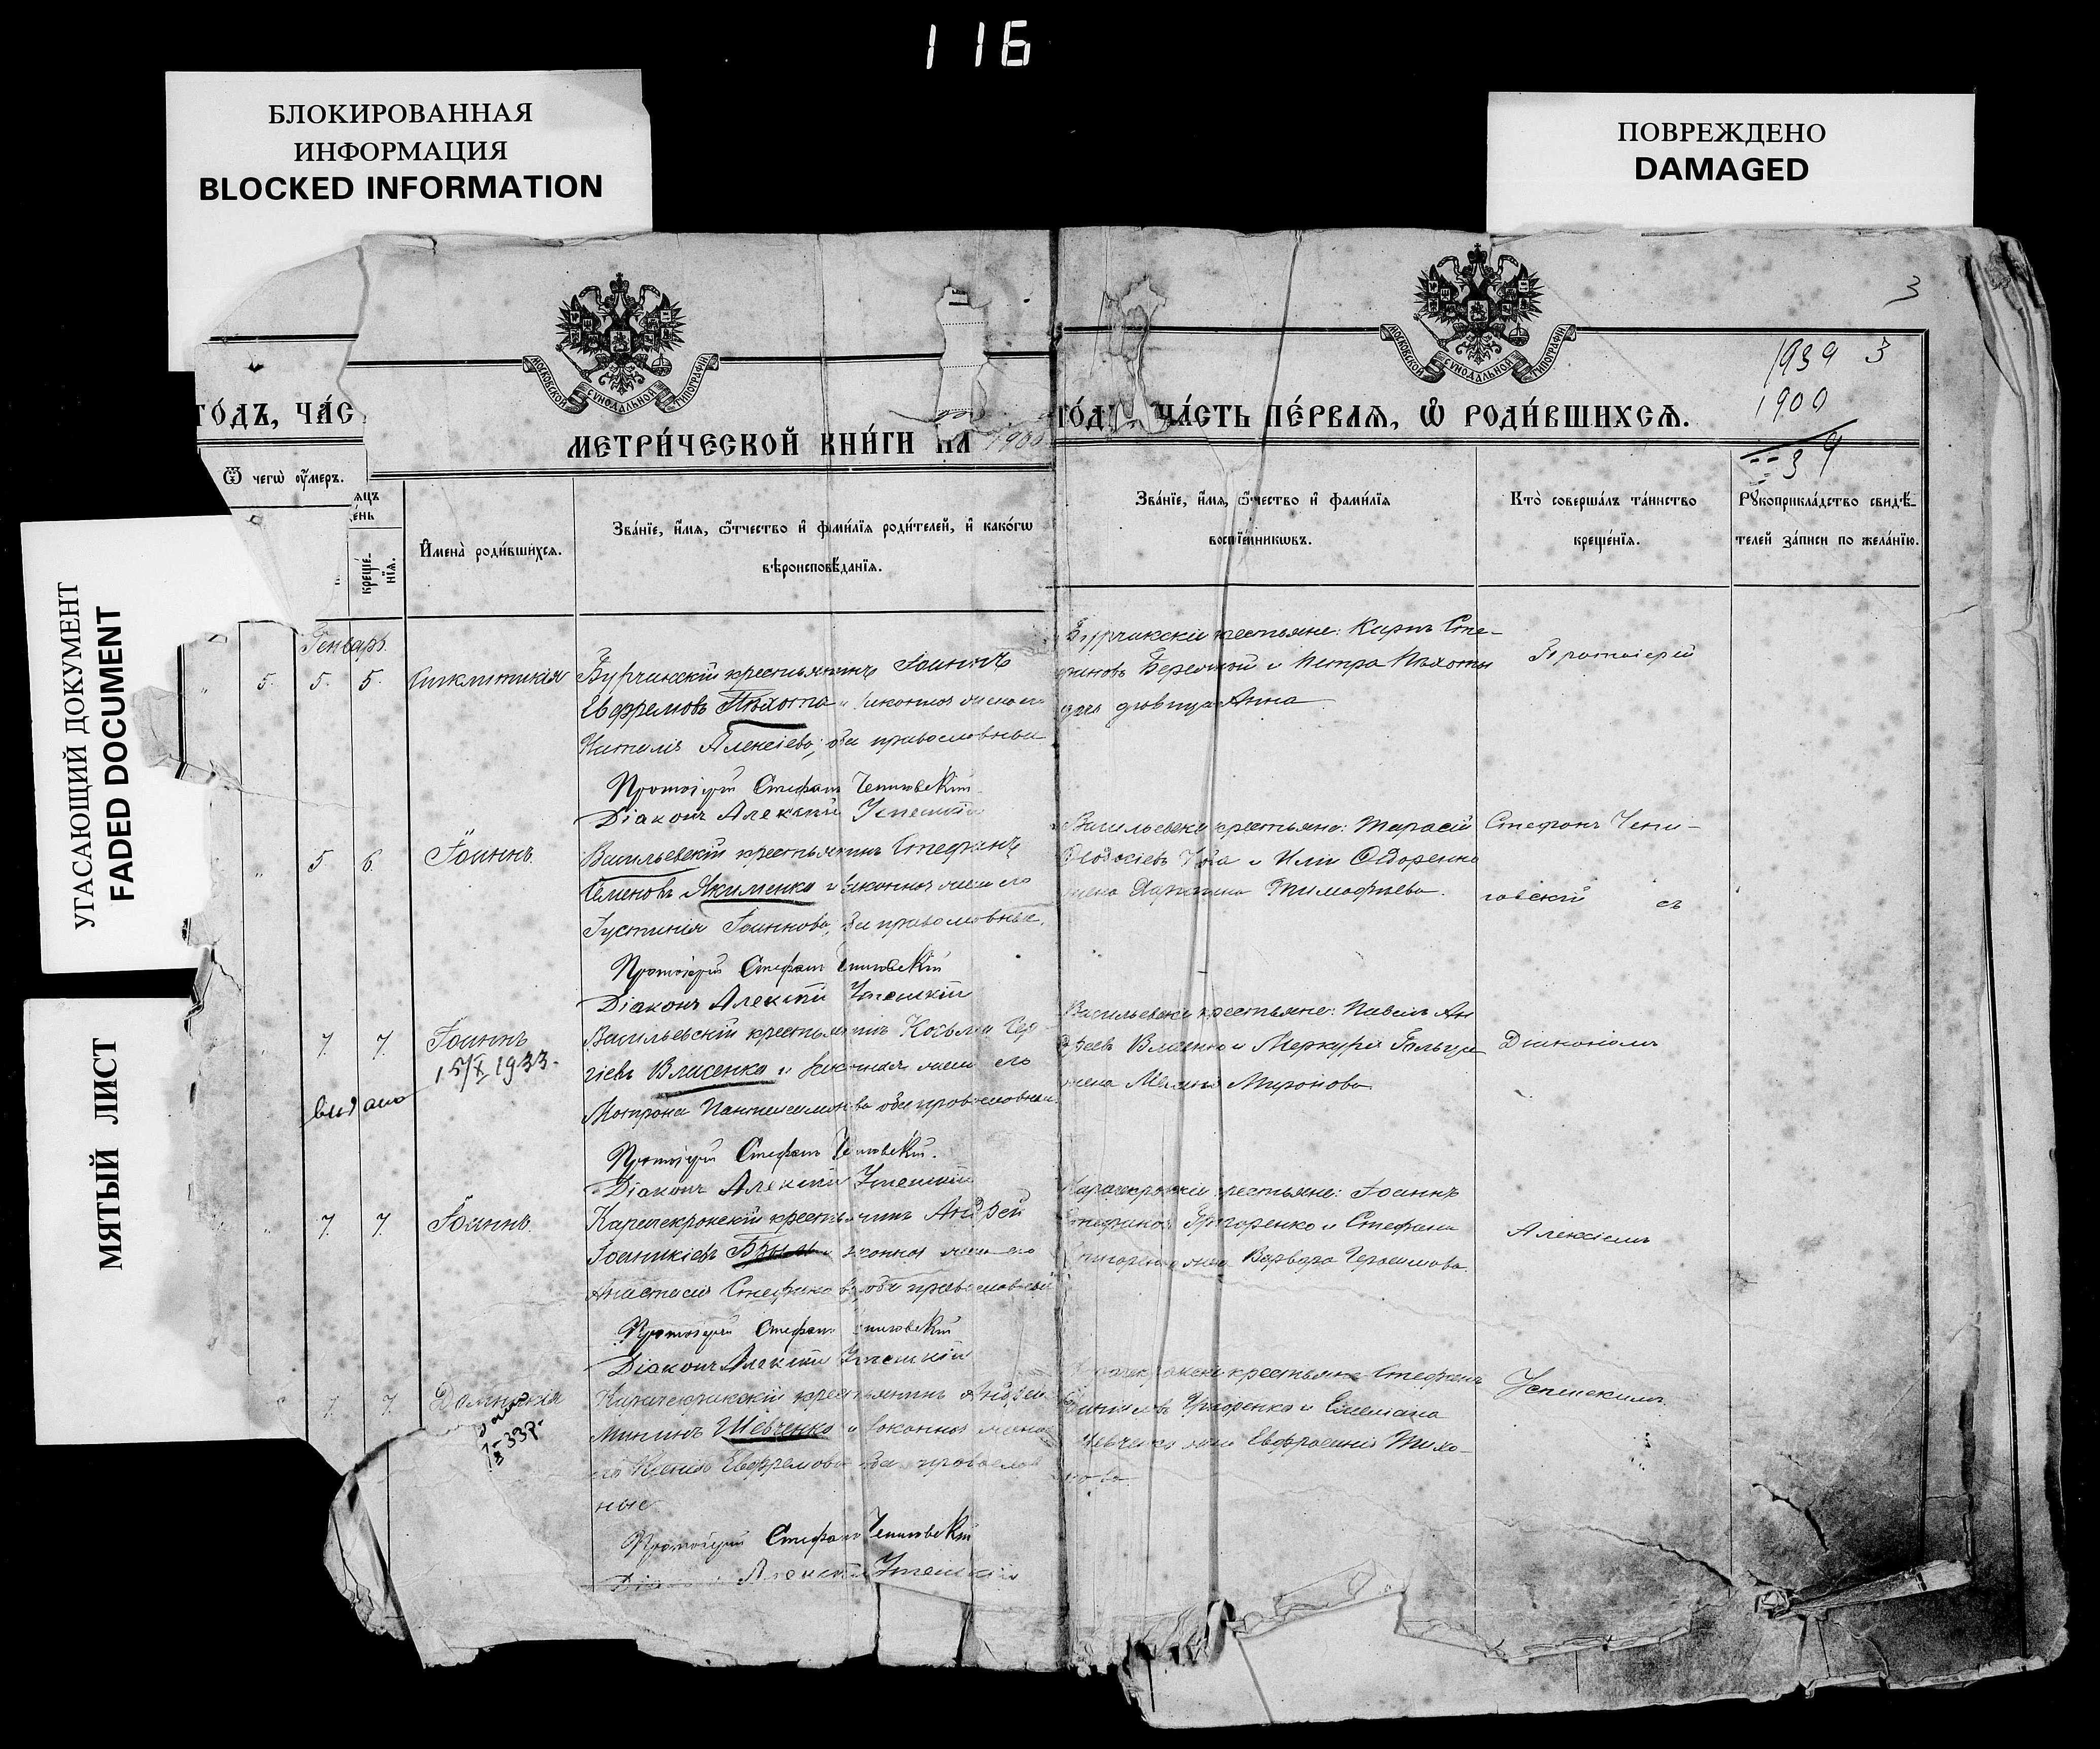 116
БЛОКИРОВАННАЯ
ИНФОРМАЦИЯ
BLOCKED INFORMATION
ПОВРЕЖДЕНО
DAMAGED
УГАСАЮЩИЙ ДОКУМЕНТ
FADED DOCUMENT
МЯТЫЙ ЛИСТ
МОСКОВСКОЙ СѴНОДАЛЬНОЙ ТИПОГРАФІИ
МОСКОВСКОЙ СѴНОДАЛЬНОЙ ТИПОГРАФІИ
3
1939 3
1900
39
ГО́ДЪ, ЧА́С
МЕТРИ́ЧЕСКОЙ КНИ́ГИ НА 1900
ГО́ДЪ ЧА́СТЬ ПЕ́РВАѦ, Ѽ РОДИ́ВШИХСѦ.
Ѿ чегѡ оу́меръ.
И҆мена̀ роди́вшихсѧ.
Зва́нїе, и҆́мѧ, ѻ҆́тчество и҆ фами́лїѧ роди́телей, и҆ како́гѡ
вѣроисповѣ́данїѧ.
креще́нїѧ.
Зва́нїе, и҆́мѧ, ѻ҆́тчество и҆ фами́лїѧ
воспрїе́мникѡвъ.
Кто̀ соверша́лъ та́инство
креще́нїѧ.
Рꙋкоприкла́дство свидѣ́-
телей за́писи по жела́нїю.
Генварь
5. 5. 5. Синклитикія
Бурчакскій крестьянинъ Іоаннъ
Евфремовъ Пѣхота и законная жена его
Наталія Алексіева, оба православные
Протоіерей Стефанъ
Діаконъ Алексій Успенскій
Бурчакскіе крестьяне: Карпъ Сте-
фановъ Бережной и Петра Пѣхоты
дочь дѣвица Анна
Протоіерей
5 6. Іоаннъ.
Васильевскій крестьянинъ Стефанъ
Семеновъ Якименко и законная жена его
Іустинія Іоаннова, оба православные.
Протоіерей Стефанъ
Діаконъ Алексій Успенскій
Васильевскіе крестьяне: Тарасій
Ѳеодосіевъ и Иліи Ѳедоренко
жена Тимофѣева.
Стефанъ
съ
7. 7. Іоаннъ
15/X 1933.
выдано
Васильевскій крестьянинъ Косьма Сер-
гіевъ Власенко и законная жена его
Матрона Пантелеимонова оба православные.
Протоіерей Стефанъ
Діаконъ Алексій Успенскій
Васильевскіе крестьяне: Павелъ Ан
дреевъ Власенко и Меркурія
жена Миронова
Діакономъ
7. 7. Іоаннъ.
Карачекракскій крестьянинъ Андрей
Іоанникіевъ Брыль и законная жена его
Анастасія Стефанова, оба православные
Протоіерей Стефанъ
Діаконъ Алексій Успенскій
Карачекракскіе крестьяне: Іоаннъ
Стефановъ Григоренко и Стефана
Григоренко жена Варвара Герасимова.
Алексіемъ
7. 7. Домникія
33р.
Карачекракскій крестьянинъ Андрей
Мининъ Шевченко и законная жена
его Ксенія Евфремова оба православ
ные
Протоіерей Стефанъ
Діаконъ Алексій Успенскій
Карачекракскіе крестьяне Стефанъ
Григоренко и Емеліана
Шевченко жена Евфросинія Тихо-
нова
Успенскимъ.